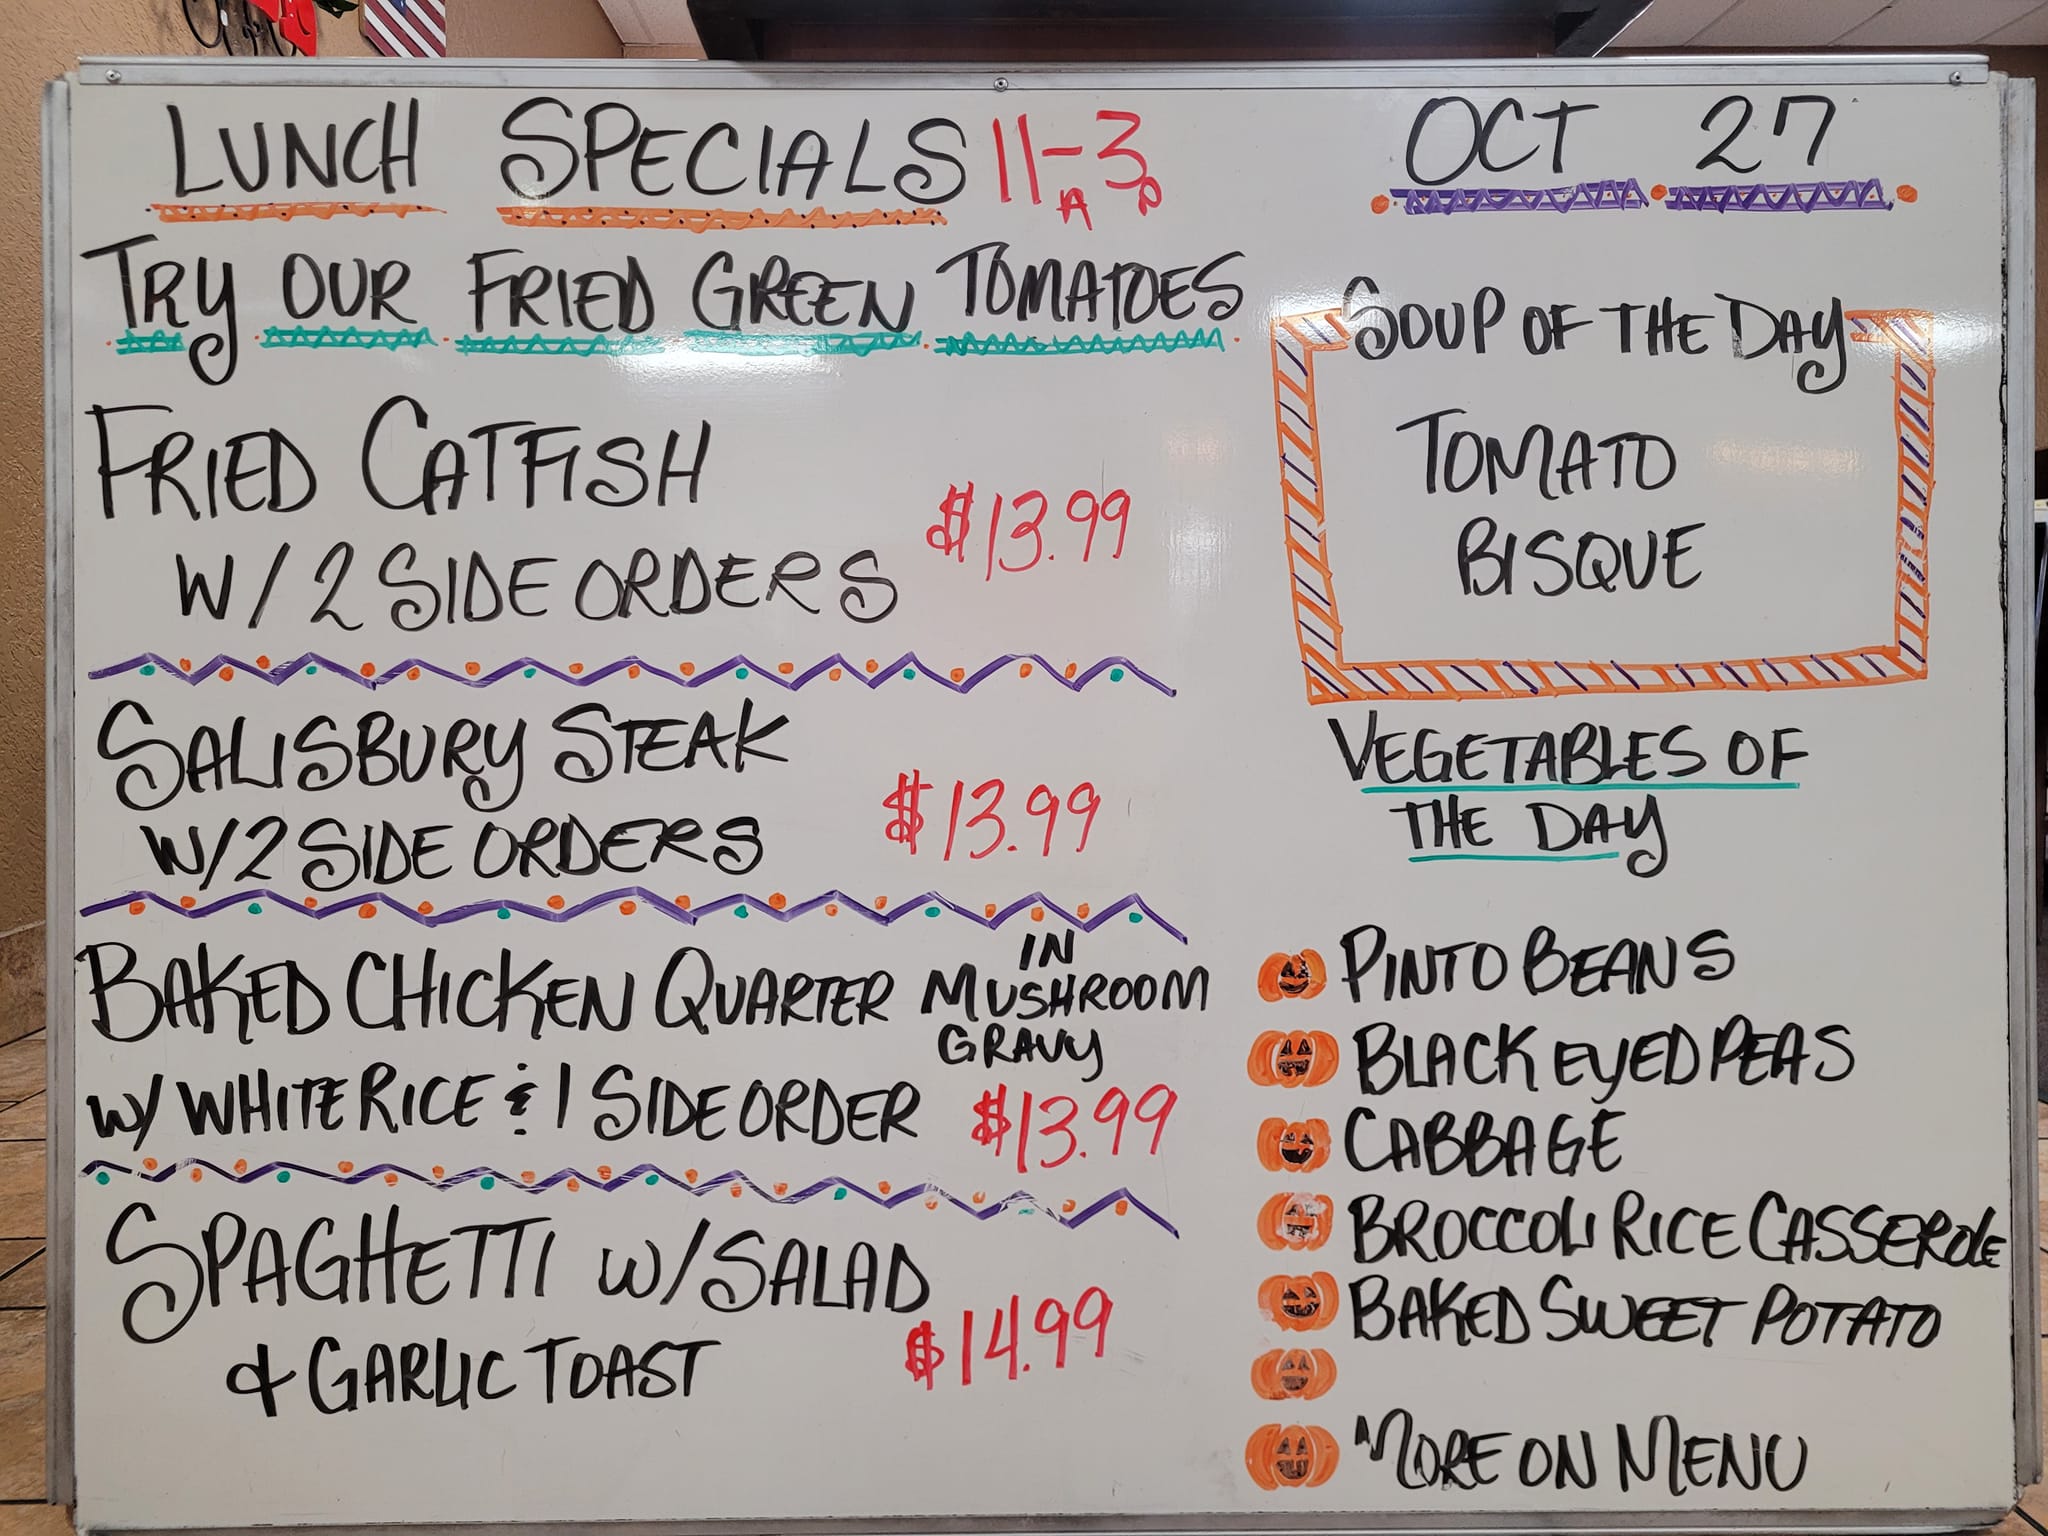 LUNCH SPECIALS 11A-3P
TRY OUR FRIED GREEN TOMATOES
FRIED CATFISH
W/ 2 SIDE ORDERS
$13.99
SALISBURY STEAK
W/ 2 SIDE ORDERS
$13.99
BAKED CHICKEN QUARTER IN
MUSHROOM
GRAVY
W/ WHITE RICE & 1 SIDE ORDER
$13.99
SPAGHETTI W/ SALAD
& GARLIC TOAST
$14.99
OCT 27
SOUP OF THE DAY
TOMATO
BISQUE
VEGETABLES OF
THE DAY
PINTO BEANS
BLACK EYED PEAS
CABBAGE
BROCCOLI RICE CASSEROLE
BAKED SWEET POTATO
MORE ON MENU